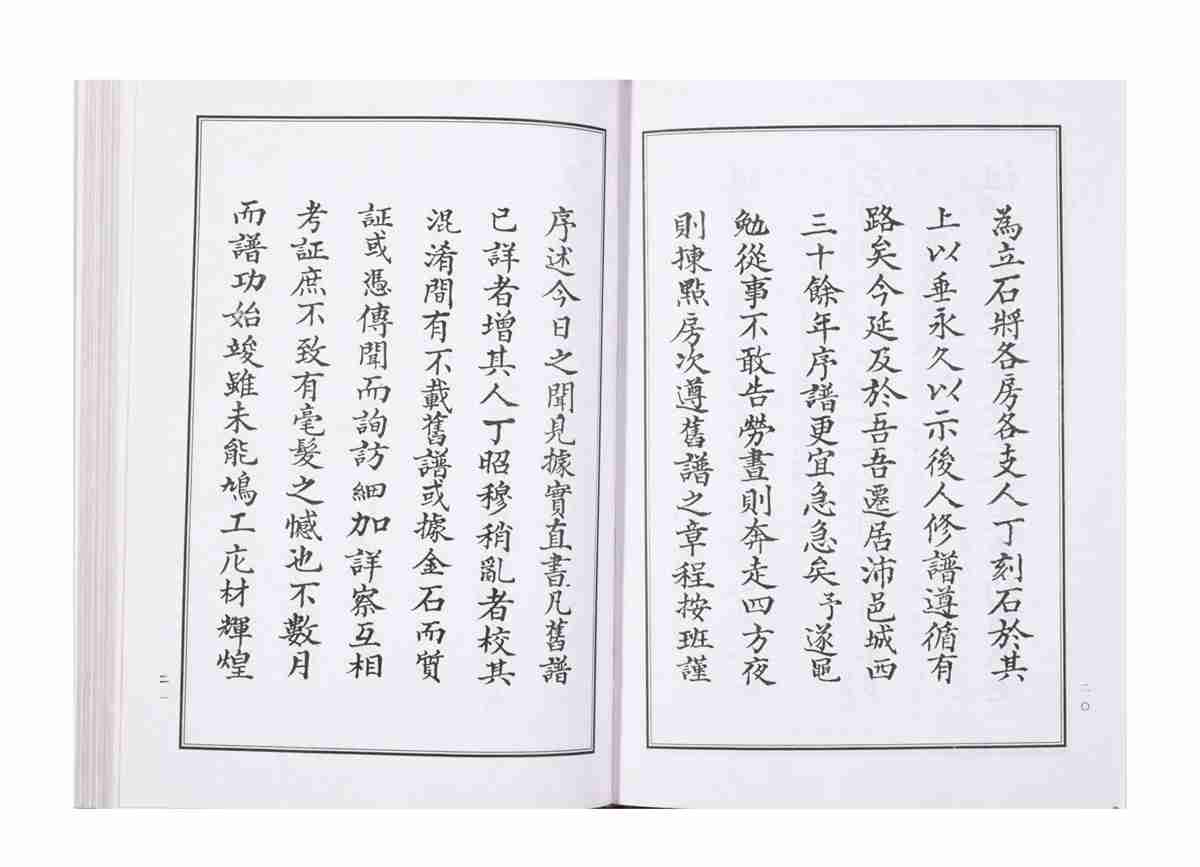 為立石將各房各支人丁刻石於其
上以垂永久以示後人修譜遵循有
路矣今延及於吾吾遷居沛邑城西
三十餘年序譜更宜急急矣予遂黽
勉從事不敢告勞晝則奔走四方夜
則揀點房次遵舊譜之章程按班謹
二〇
序述今日之聞見據實直書凡舊譜
已詳者增其人丁昭穆稍亂者校其
混淆間有不載舊譜或據金石而質
証或憑傳聞而詢訪細加詳察互相
考証庶不致有毫髮之憾也不數月
而譜功始竣雖未能鳩工庀材輝煌
二一